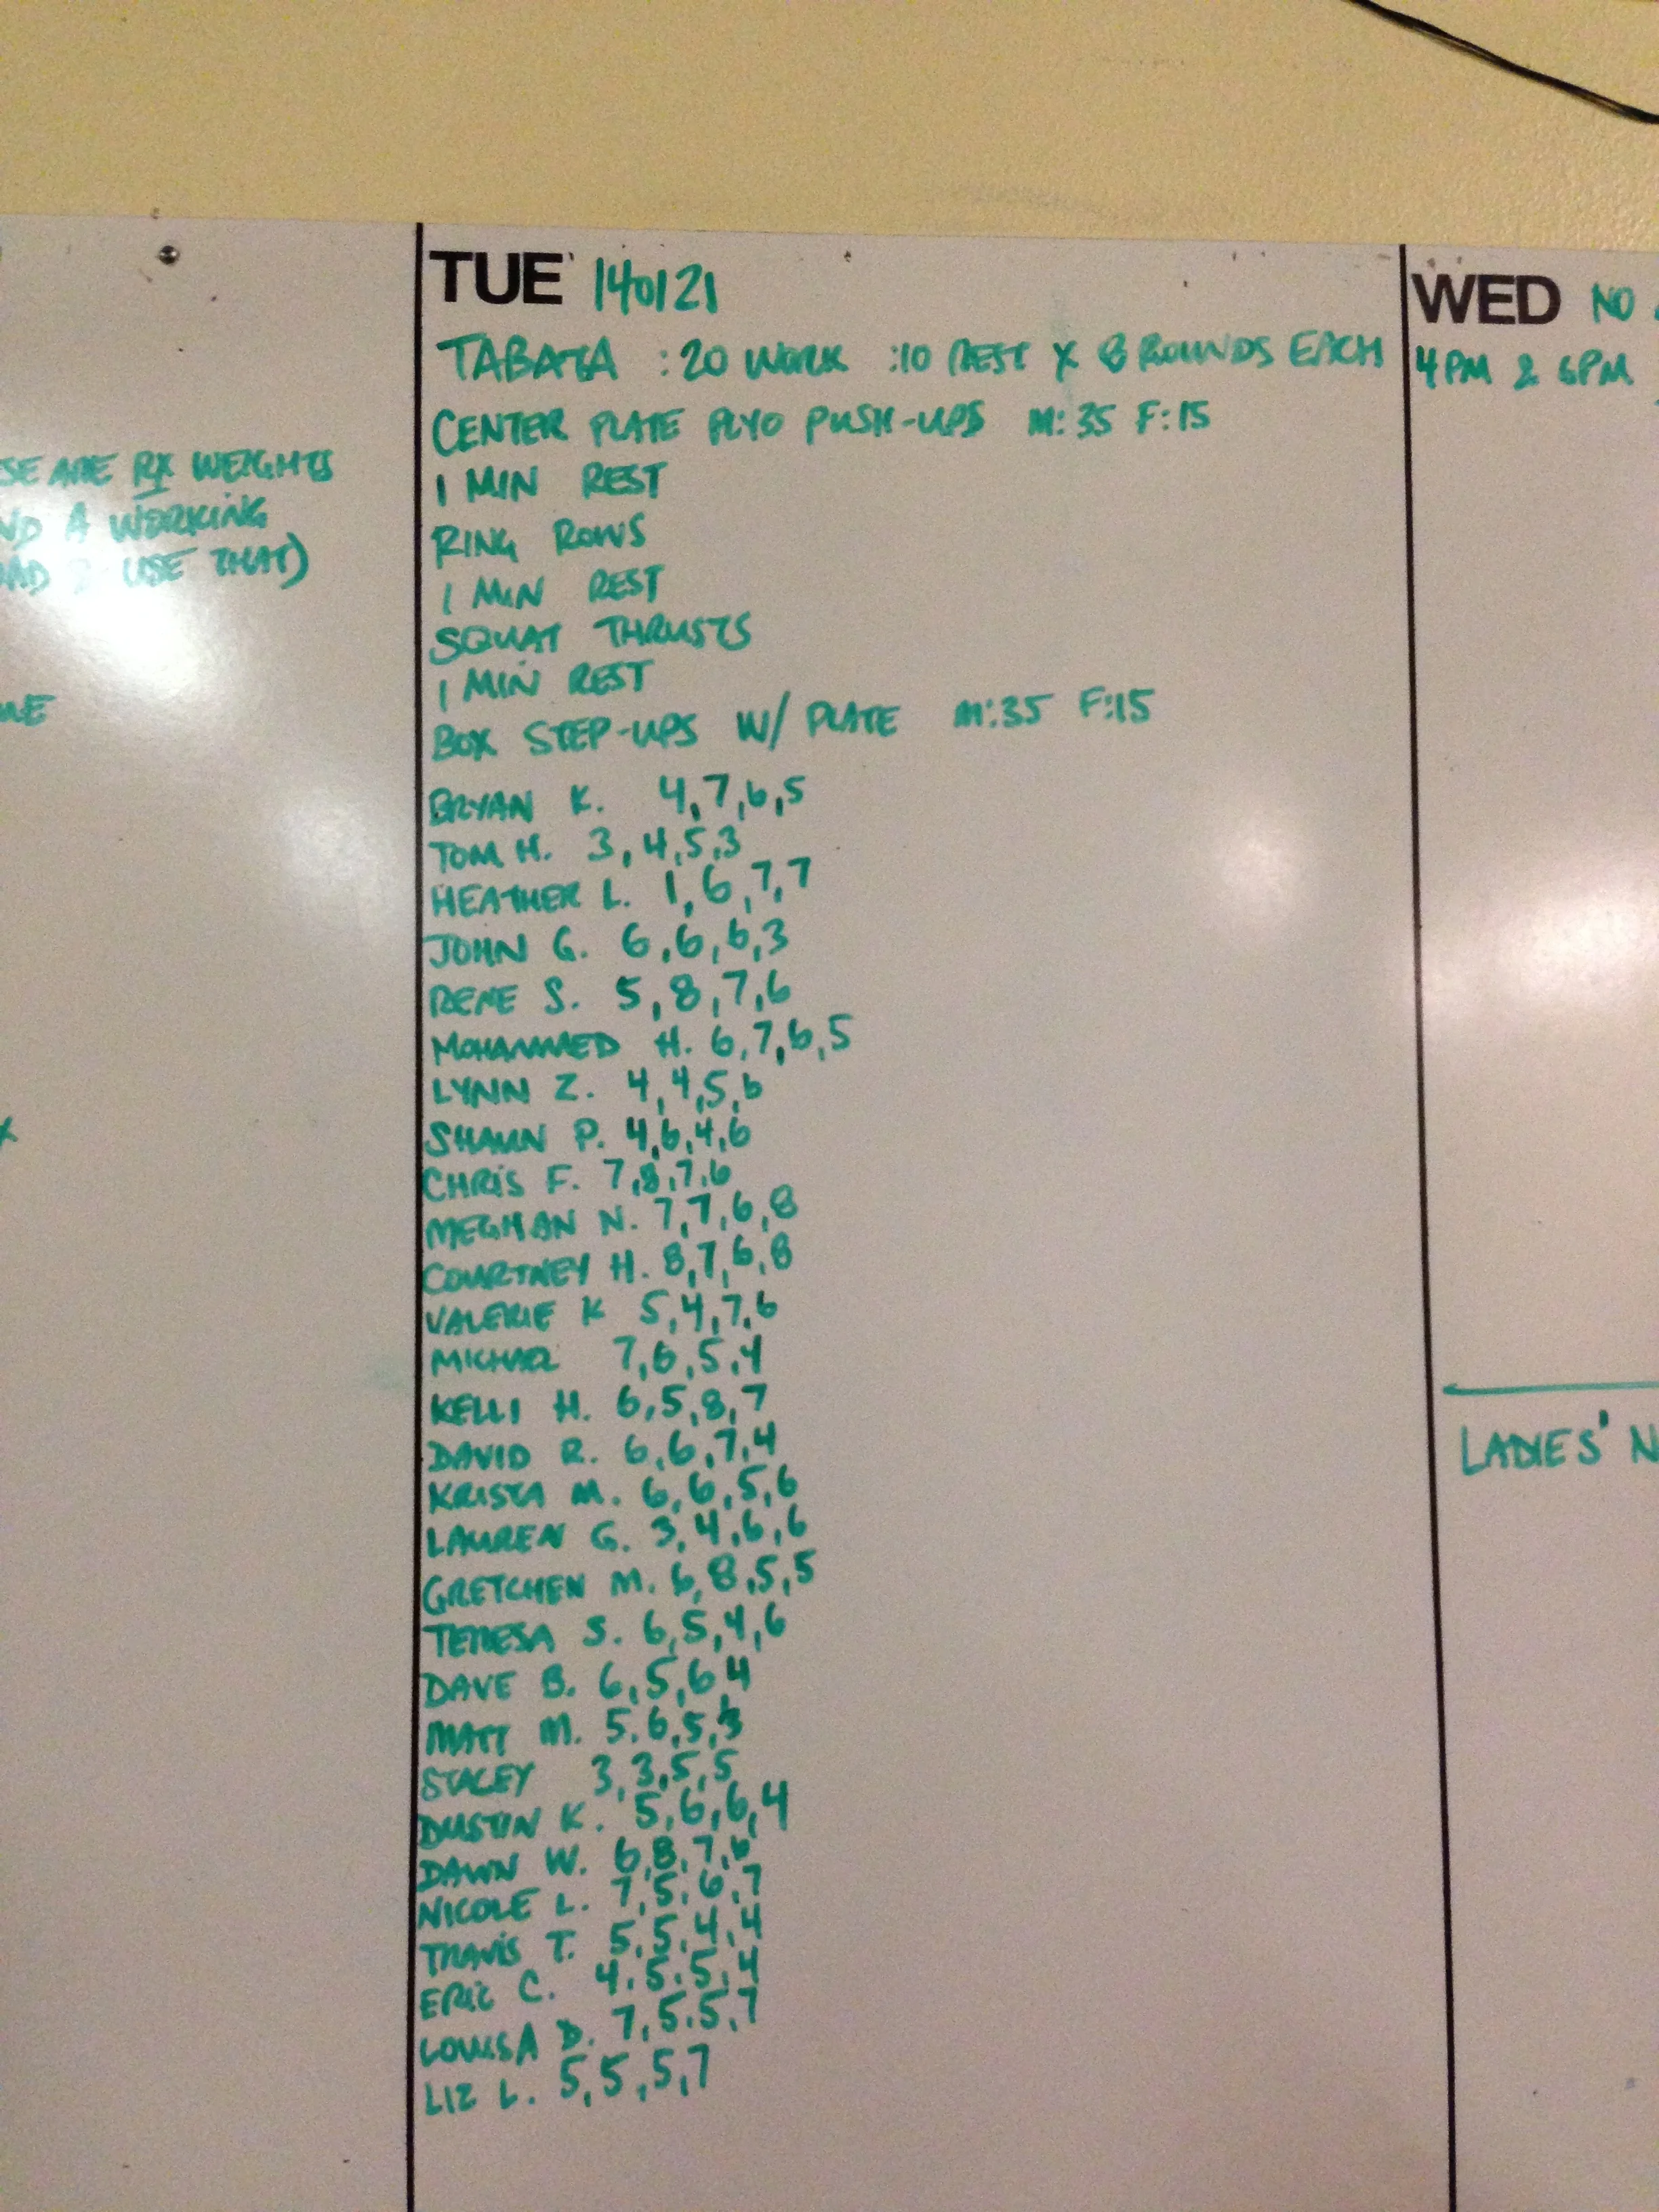 SE ARE RX WEIGHTS
ND A WORKING
AD & USE THAT)
TUE 140121
TABATA :20 WORK :10 REST X 8 ROUNDS EACH
CENTER PLATE PLYO PUSH-UPS M:35 F:15
1 MIN REST
RING ROWS
1 MIN REST
SQUAT THRUSTS
1 MIN REST
BOX STEP-UPS W/ PLATE M:35 F:15
BRYAN K. 4,7,6,5
TOM H. 3,4,5,3
HEATHER L. 1,6,7,7
JOHN G. 6,6,6,3
RENE S. 5,8,7,6
MOHAMMED H. 6,7,6,5
LYNN Z. 4,4,5,6
SHAUN P. 4,6,4,6
CHRIS F. 7,8,7,6
MEGHAN N. 7,7,6,8
COURTNEY H. 8,7,6,8
VALERIE K 5,4,7,6
MICHAEL 7,6,5,4
KELLI H. 6,5,8,7
DAVID R. 6,6,7,4
KRISTA M. 6,6,5,6
LAUREN G. 3,4,6,6
GRETCHEN M. 6,8,5,5
TERESA S. 6,5,4,6
DAVE B. 6,5,6 4
MATT M. 5,6,5,3
STACEY 3,3,5,5
DUSTIN K. 5,6,6,4
DAWN W. 6,8,7,6
NICOLE L. 7,5,6,7
TRAVIS T. 5,5,4,4
ERIC C. 4,5,5,4
LOUISA D. 7,5,5,7
LIZ L. 5,5,5,7
WED NO
4PM & 6PM
LADIES' N